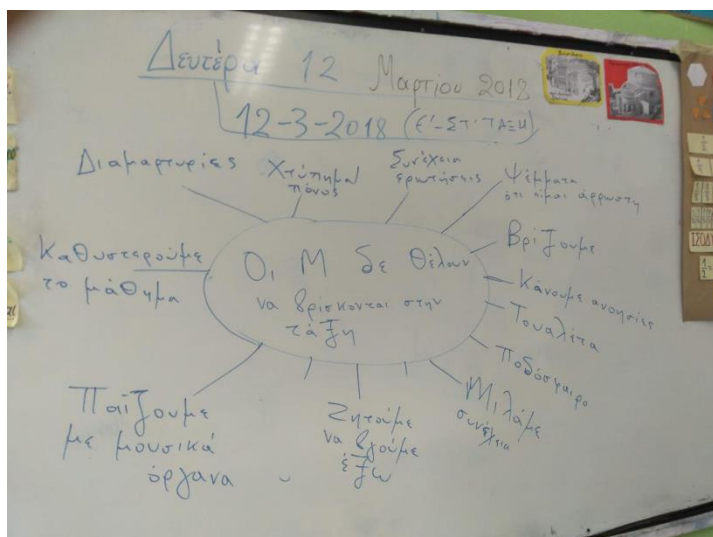 Δευτέρα 12 Μαρτίου 2018
12-3-2018 (Ε'-ΣΤ' ΤΑΞΗ)
Διαμαρτυρίες
Χτύπημα/
πόνος
Συνέχεια
ερωτήσεις
Ψέμματα
ότι είμαι άρρωστη
Βρίζουμε
Κάνουμε ανοησίες
Τουαλέτα
Ποδόσφαιρο
Μιλάμε
συνέχεια
Ζητούμε
να βγούμε
έξω
Παίζουμε
με μουσικά
όργανα
Καθυστερούμε
το μάθημα
Οι Μ δε θέλουν
να βρίσκονται στην
τάξη